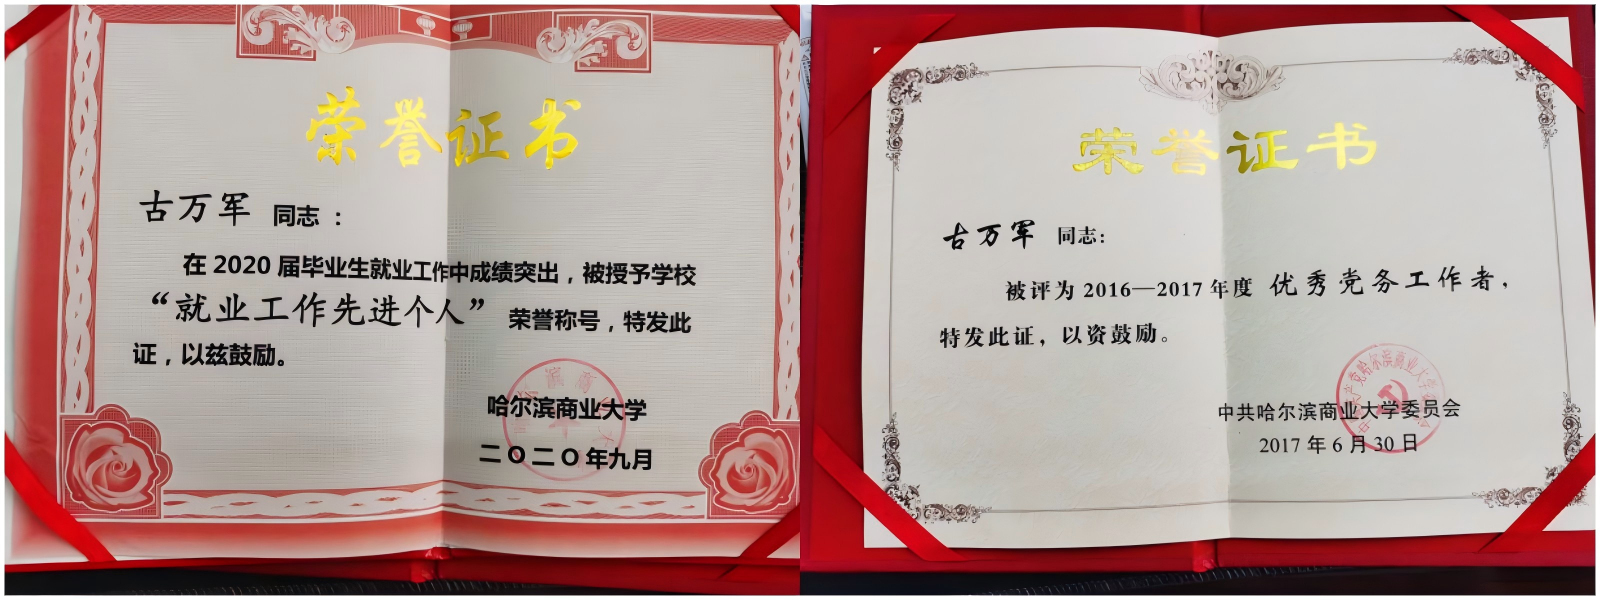 荣誉证书
古万军 同志：
在 2020 届毕业生就业工作中成绩突出，被授予学校
“就业工作先进个人” 荣誉称号，特发此
证，以兹鼓励。
哈尔滨商业大学
二〇二〇年九月
荣誉证书
古万军 同志：
被评为 2016—2017 年度 优秀党务工作者，
特发此证，以资鼓励。
中共哈尔滨商业大学委员会
2017 年 6 月 30 日